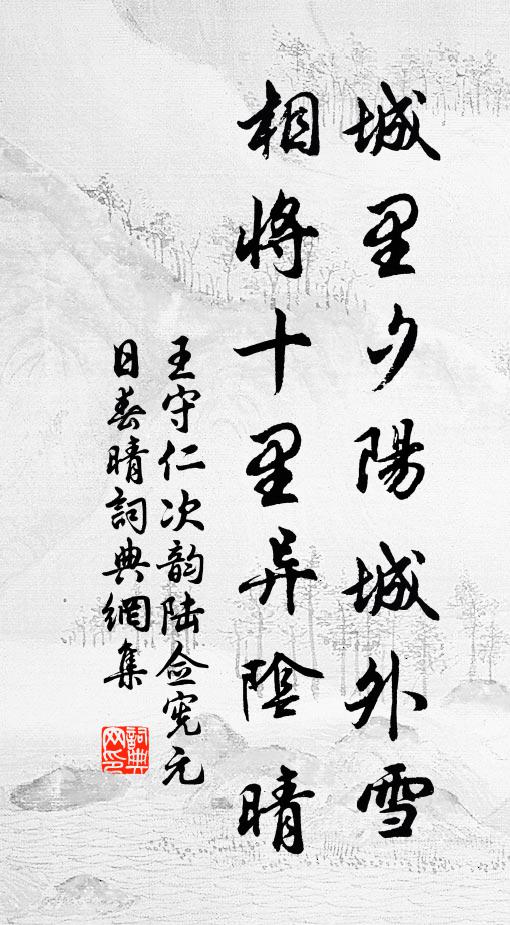 城里夕陽城外雪
相將十里异陰晴
王守仁次韵陆佥宪元
日春晴詞典網集
詞典网印